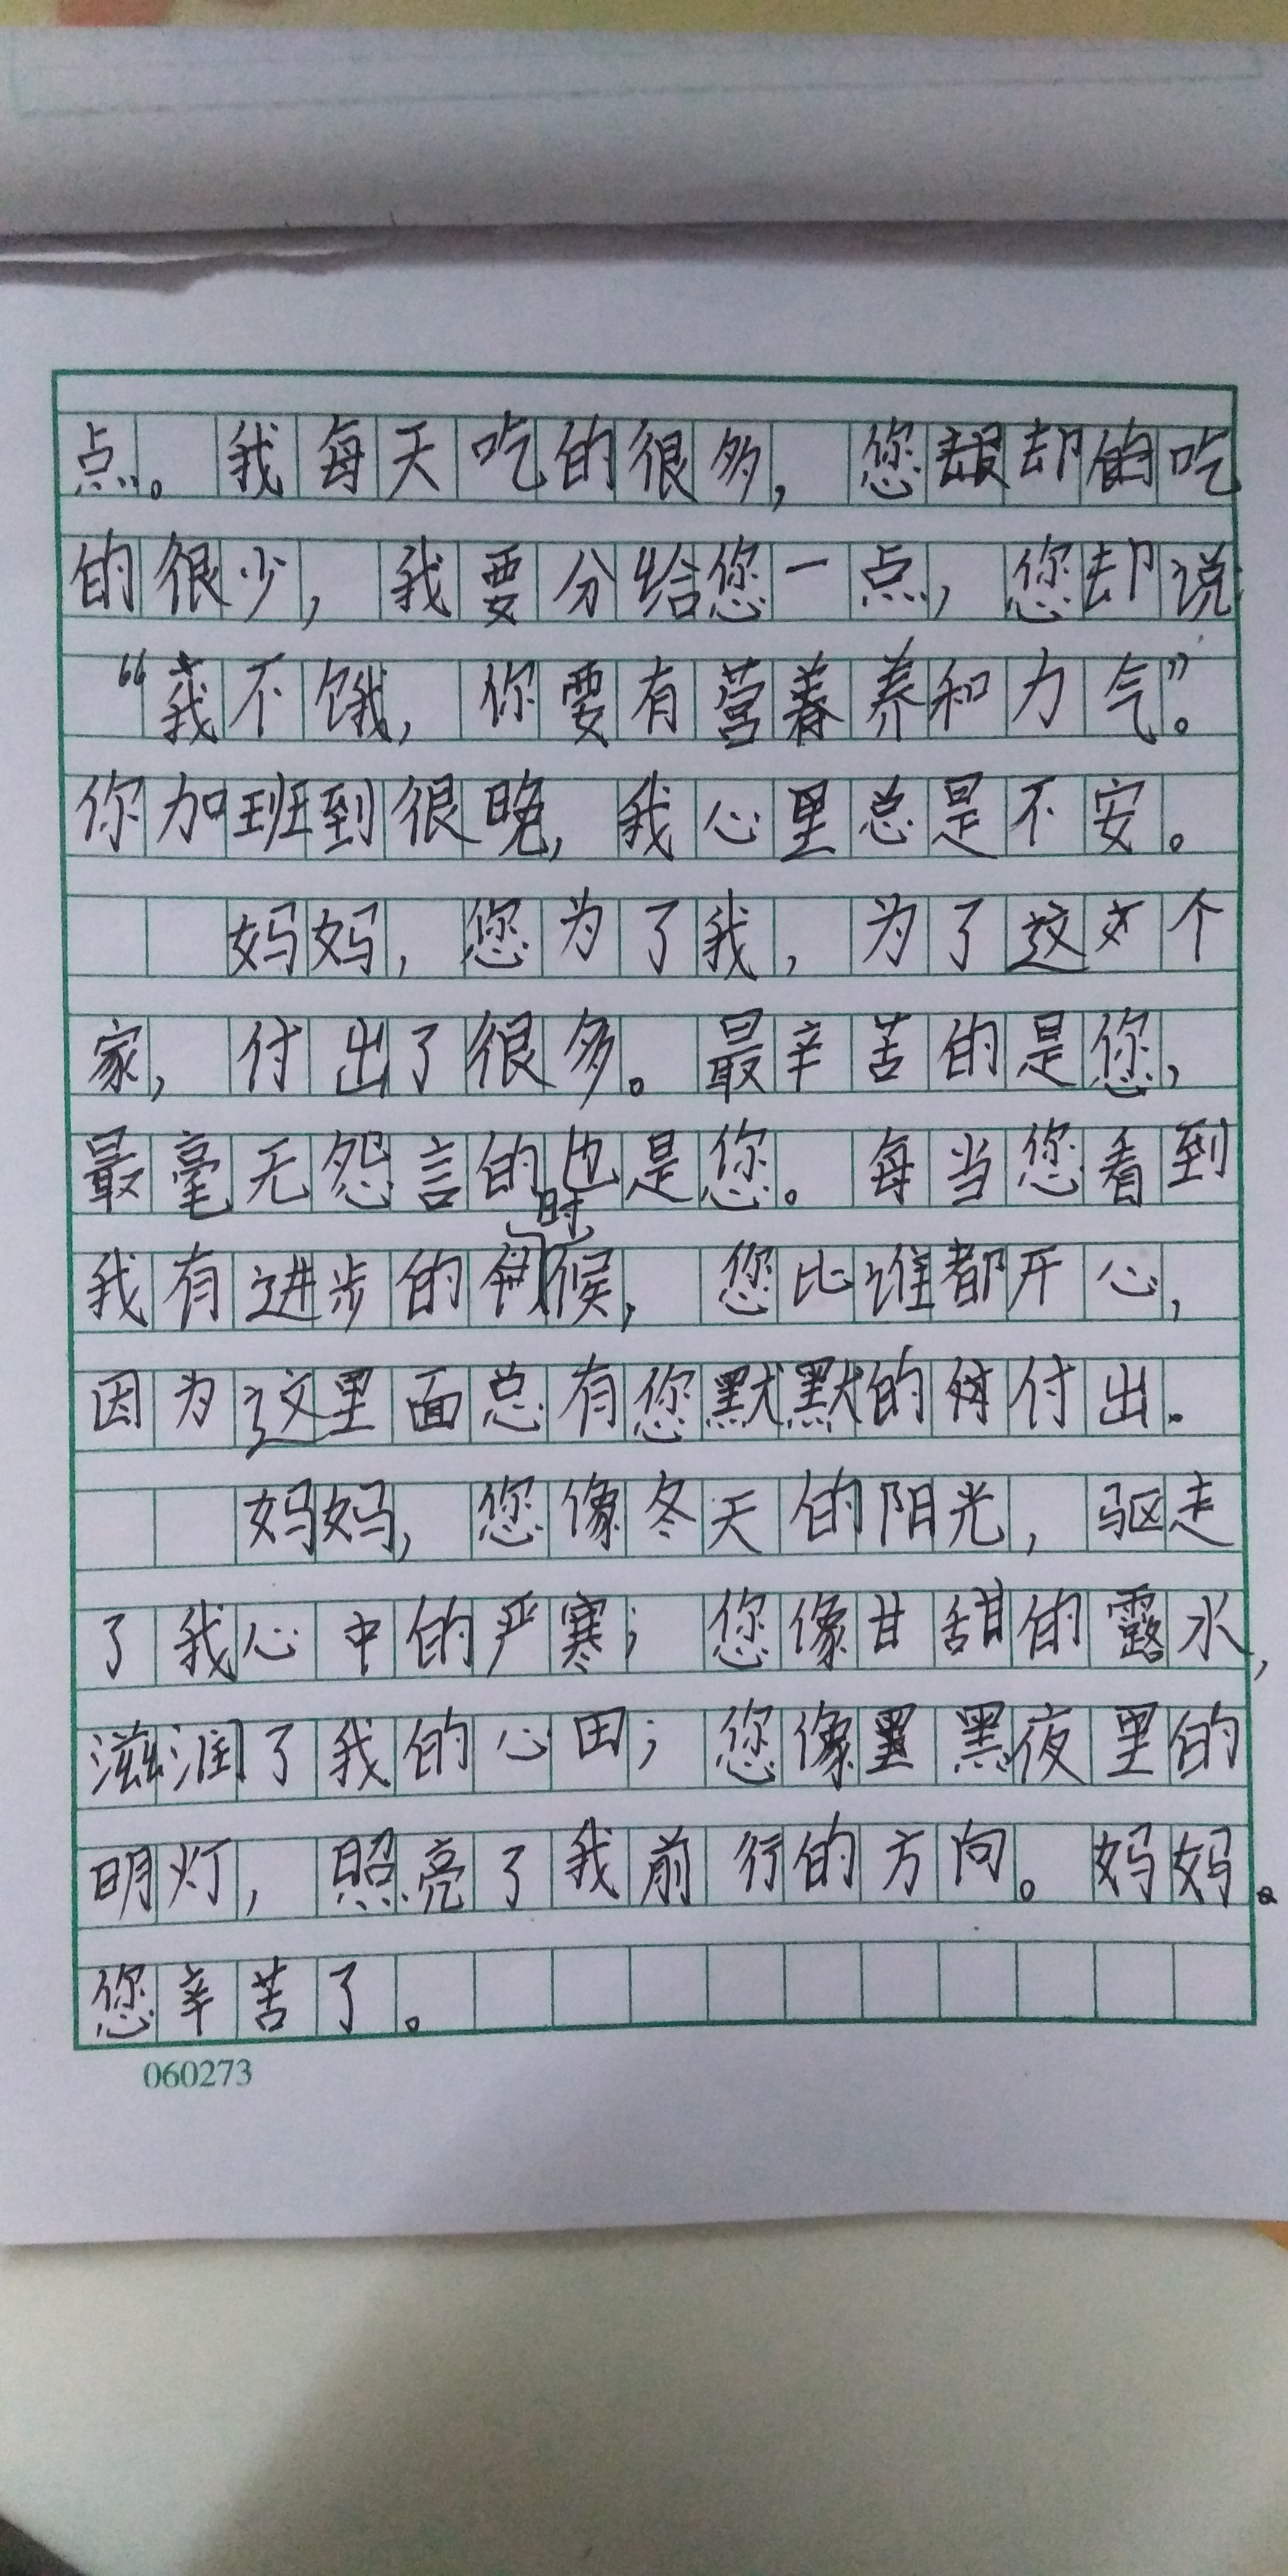 点。我每天吃的很多，您却吃
的很少，我要分给您一点，您却说：
“我不饿，你要有营养和力气”。
你加班到很晚，我心里总是不安。
妈妈，您为了我，为了这个
家，付出了很多。最辛苦的是您，
最毫无怨言的也是您。每当您看到
我有进步的时候，您比谁都开心，
因为这里面总有您默默的付出。
妈妈，您像冬天的阳光，驱走
了我心中的严寒；您像甘甜的露水，
滋润了我的心田；您像黑夜里的
明灯，照亮了我前行的方向。妈妈。
您辛苦了。
060273